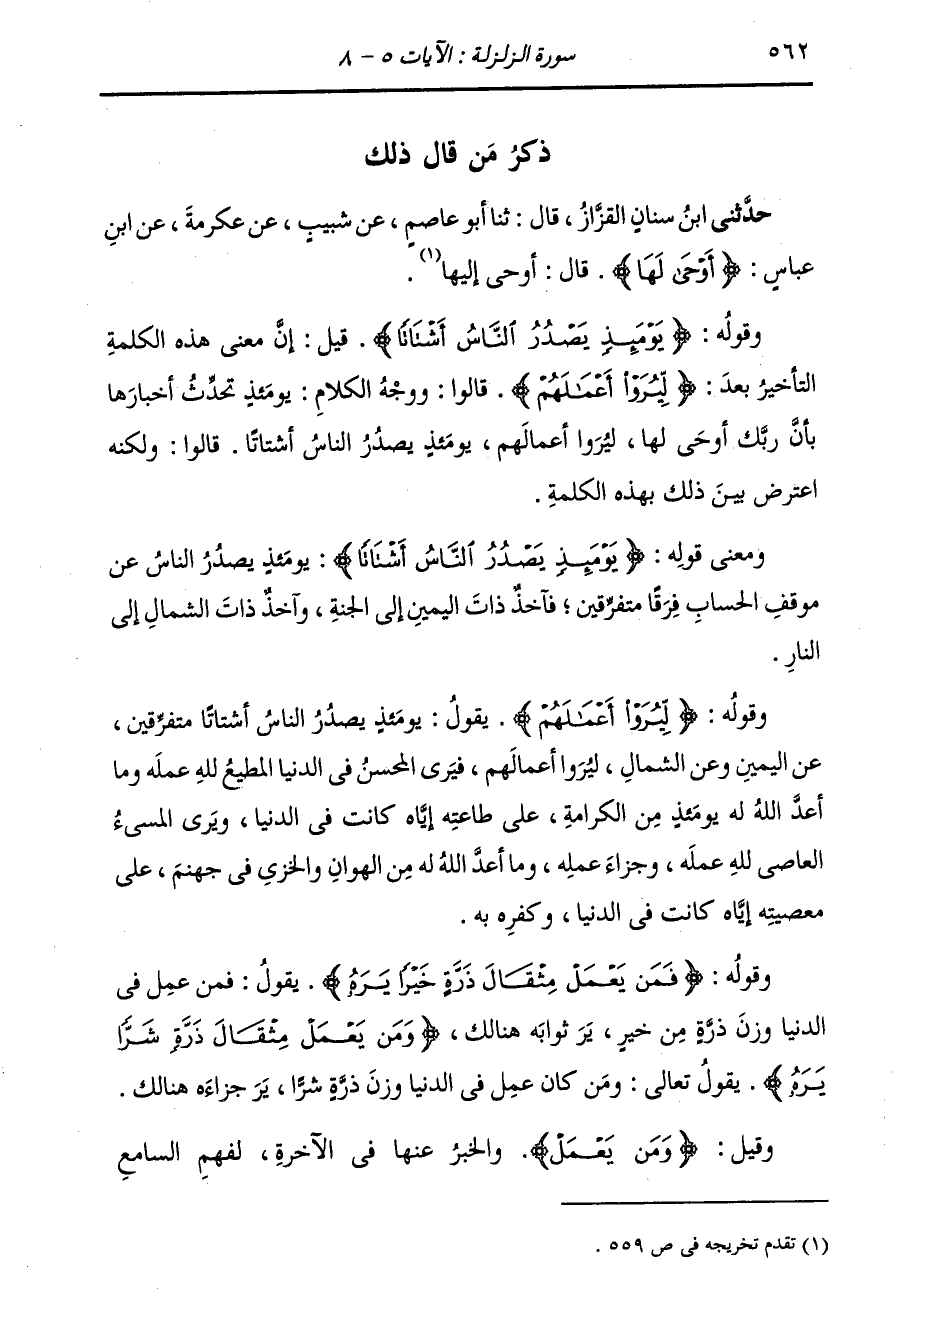 ٥٦٢
سورة الزلزلة : الآيات ٥ - ٨
ذكرُ مَن قال ذلك
حدَّثنى ابنُ سنانٍ القزَّازُ ، قال : ثنا أبو عاصمٍ ، عن شبيبٍ ، عن عكرمةَ ، عن ابنِ
عباسٍ : ﴿ أَوْحَىٰ لَهَا ﴾ . قال : أوحى إليها(١) .
وقولُه : ﴿ يَوْمَئِذٍ يَصْدُرُ ٱلنَّاسُ أَشْتَاتًا ﴾ . قيل : إنَّ معنى هذه الكلمةِ
التأخيرُ بعدَ : ﴿ لِّيُرَوْا۟ أَعْمَـٰلَهُمْ ﴾ . قالوا : ووجْهُ الكلامِ : يومَئذٍ تحدِّثُ أخبارَها
بأنَّ ربَّك أوحَى لها ، ليُرَوا أعمالَهم ، يومَئذٍ يصدُرُ الناسُ أشتاتًا . قالوا : ولكنه
اعترض بينَ ذلك بهذه الكلمةِ .
ومعنى قولِه : ﴿ يَوْمَئِذٍ يَصْدُرُ ٱلنَّاسُ أَشْتَاتًا ﴾ : يومَئذٍ يصدُرُ الناسُ عن
موقفِ الحسابِ فِرَقًا متفرِّقين ؛ فآخذٌ ذاتَ اليمينِ إلى الجنةِ ، وآخذٌ ذاتَ الشمالِ إلى
النارِ .
وقولُه : ﴿ لِّيُرَوْا۟ أَعْمَـٰلَهُمْ ﴾ . يقولُ : يومَئذٍ يصدُرُ الناسُ أشتاتًا متفرِّقين ،
عن اليمينِ وعن الشمالِ ، ليُرَوا أعمالَهم ، فيَرى المحسنُ فى الدنيا المطيعُ للهِ عملَه وما
أعدَّ اللهُ له يومَئذٍ مِن الكرامةِ ، على طاعتِه إيَّاه كانت فى الدنيا ، ويَرى المسىءُ
العاصى للهِ عملَه ، وجزاءَ عملِه ، وما أعدَّ اللهُ له مِن الهوانِ والخزيِ فى جهنمَ ، على
معصيتِه إيَّاه كانت فى الدنيا ، وكفرِه به .
وقولُه : ﴿ فَمَن يَعْمَلْ مِثْقَالَ ذَرَّةٍ خَيْرًا يَرَهُۥ ﴾ . يقولُ : فمن عمِل فى
الدنيا وزنَ ذرَّةٍ مِن خيرٍ ، يَرَ ثوابَه هنالك ، ﴿ وَمَن يَعْمَلْ مِثْقَالَ ذَرَّةٍ شَرًّا
يَرَهُۥ ﴾ . يقولُ تعالى : ومَن كان عمِل فى الدنيا وزنَ ذرَّةٍ شرًّا ، يَرَ جزاءَه هنالك .
وقيل : ﴿ وَمَن يَعْمَلْ ﴾. والخبرُ عنها فى الآخرةِ ، لفهمِ السامعِ
(١) تقدم تخريجه فى ص ٥٥٩ .